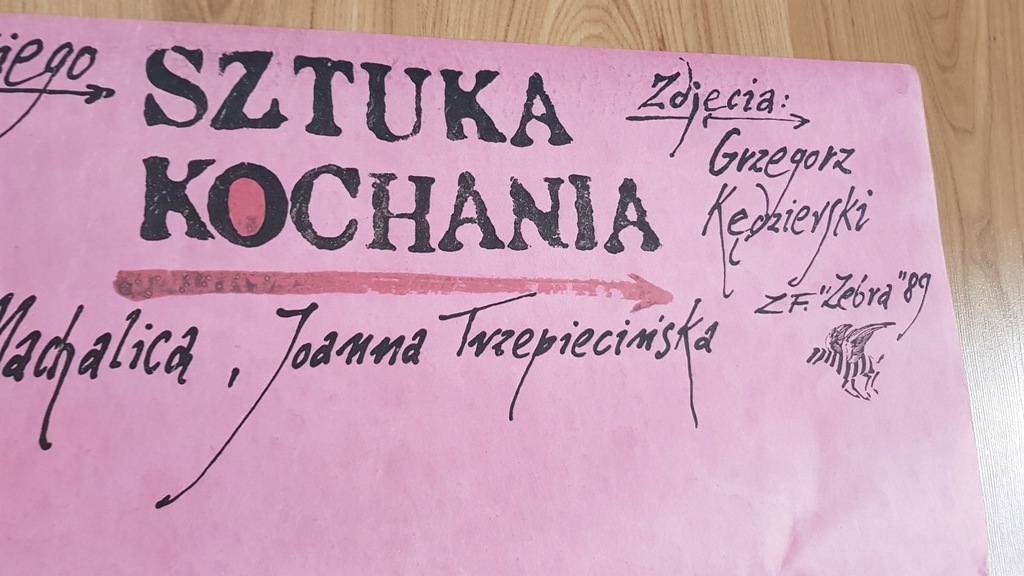 SZTUKA
KOCHANIA
Machalicą, Joanna Trzepiecińska
Zdjęcia:
Grzegorz
Kędzierski
Z.F. "Zebra" 89